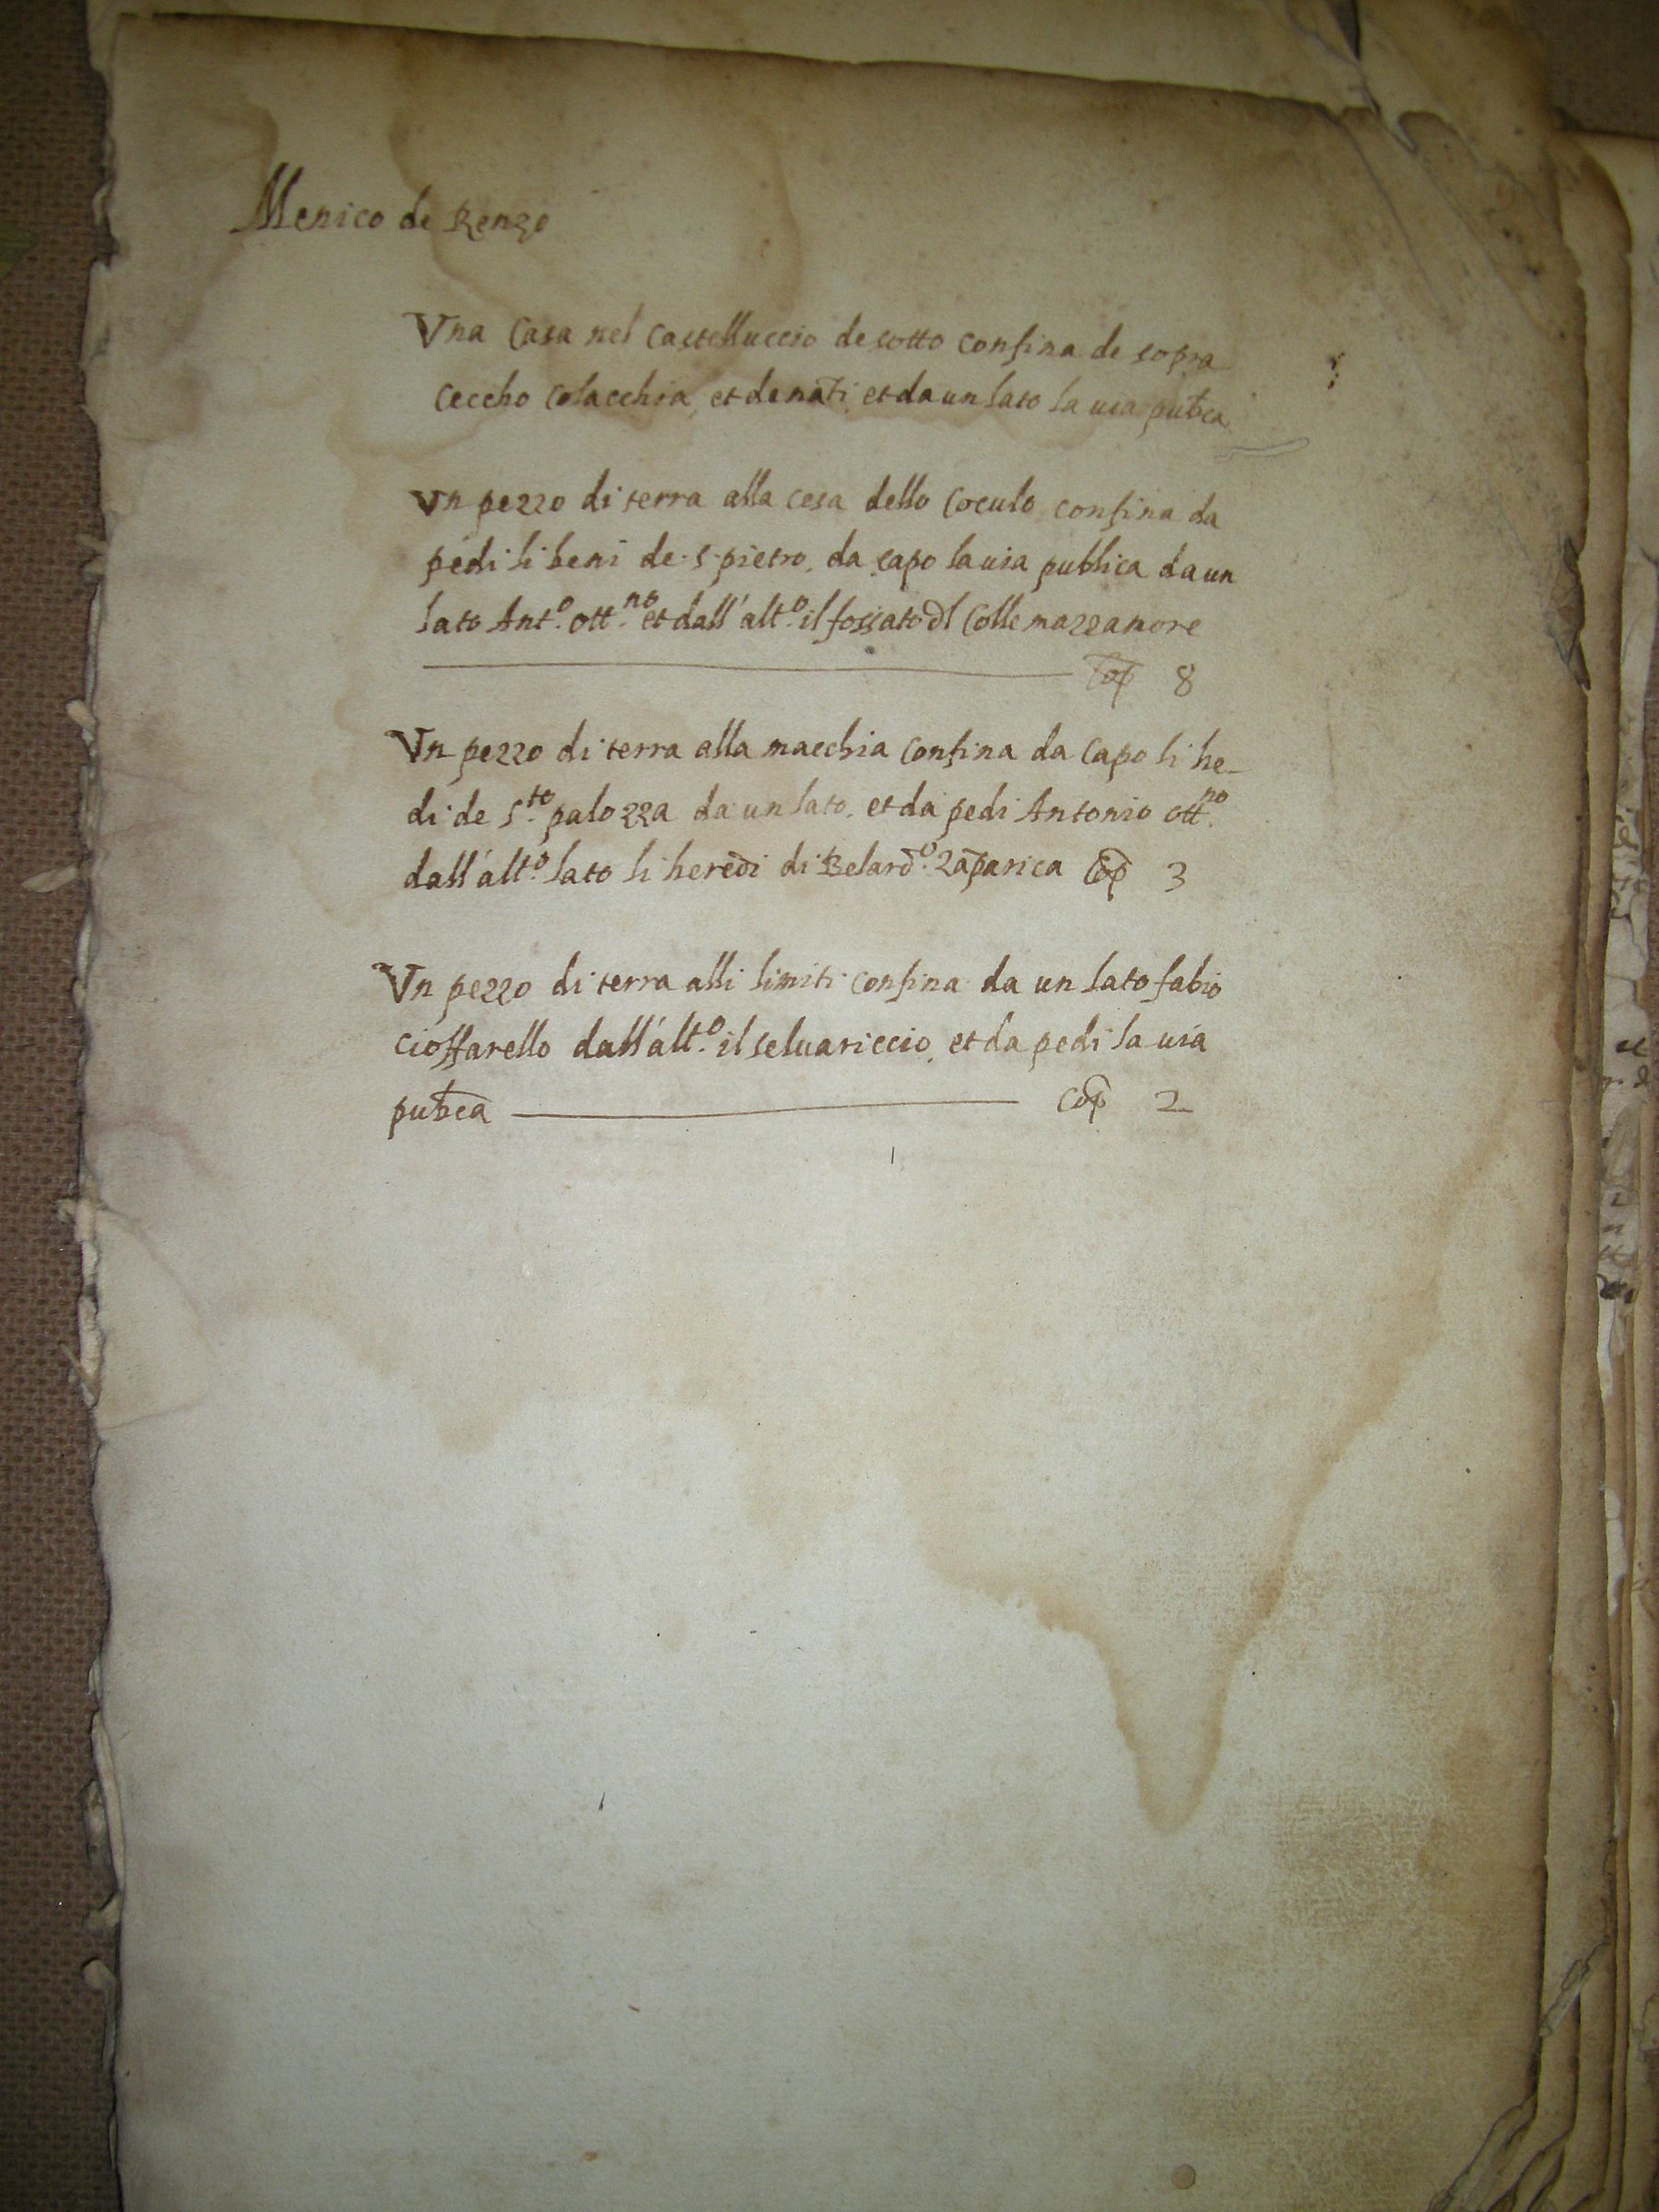 Menico de Renzo
Vna Casa nel Castelluccio de sotto confina de sopra
Ceccho Colacchia, et denāti, et da un lato la uia pub̄ca
Vn pezzo di terra alla cesa dello Coculo confina da
pedi li beni de S. pietro, da capo la uia publica da un
lato Ant.º Ott.ⁿᵒ et dall'alt.º il fossato d̄l Colle mazzamore
Cop̄ 8
Vn pezzo di terra alla macchia Confina da Capo li he-
di de S.ᵗᵒ palozza da un lato, et da pedi Antonio Ott.ⁿᵒ
dall'alt.º lato li heredi di Belard.º Zāparica Cop̄ 3
Vn pezzo di terra alli limiti confina da un lato fabio
cioffarello dall'alt.º il seluariccio, et da pedi la uia
pub̄ca Cop̄ 2